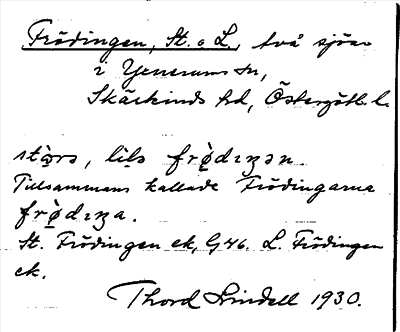 Frödingen, St. o L., två sjöar
i Yxnerums sn,
Skärkinds hd, Östergötl. l.
stora, lila frödıŋən.
Tillsammans kallade Frödingarna
frödıŋa.
St. Frödingen ek, G46. L. Frödingen
ek.
Thord Lindell 1930.